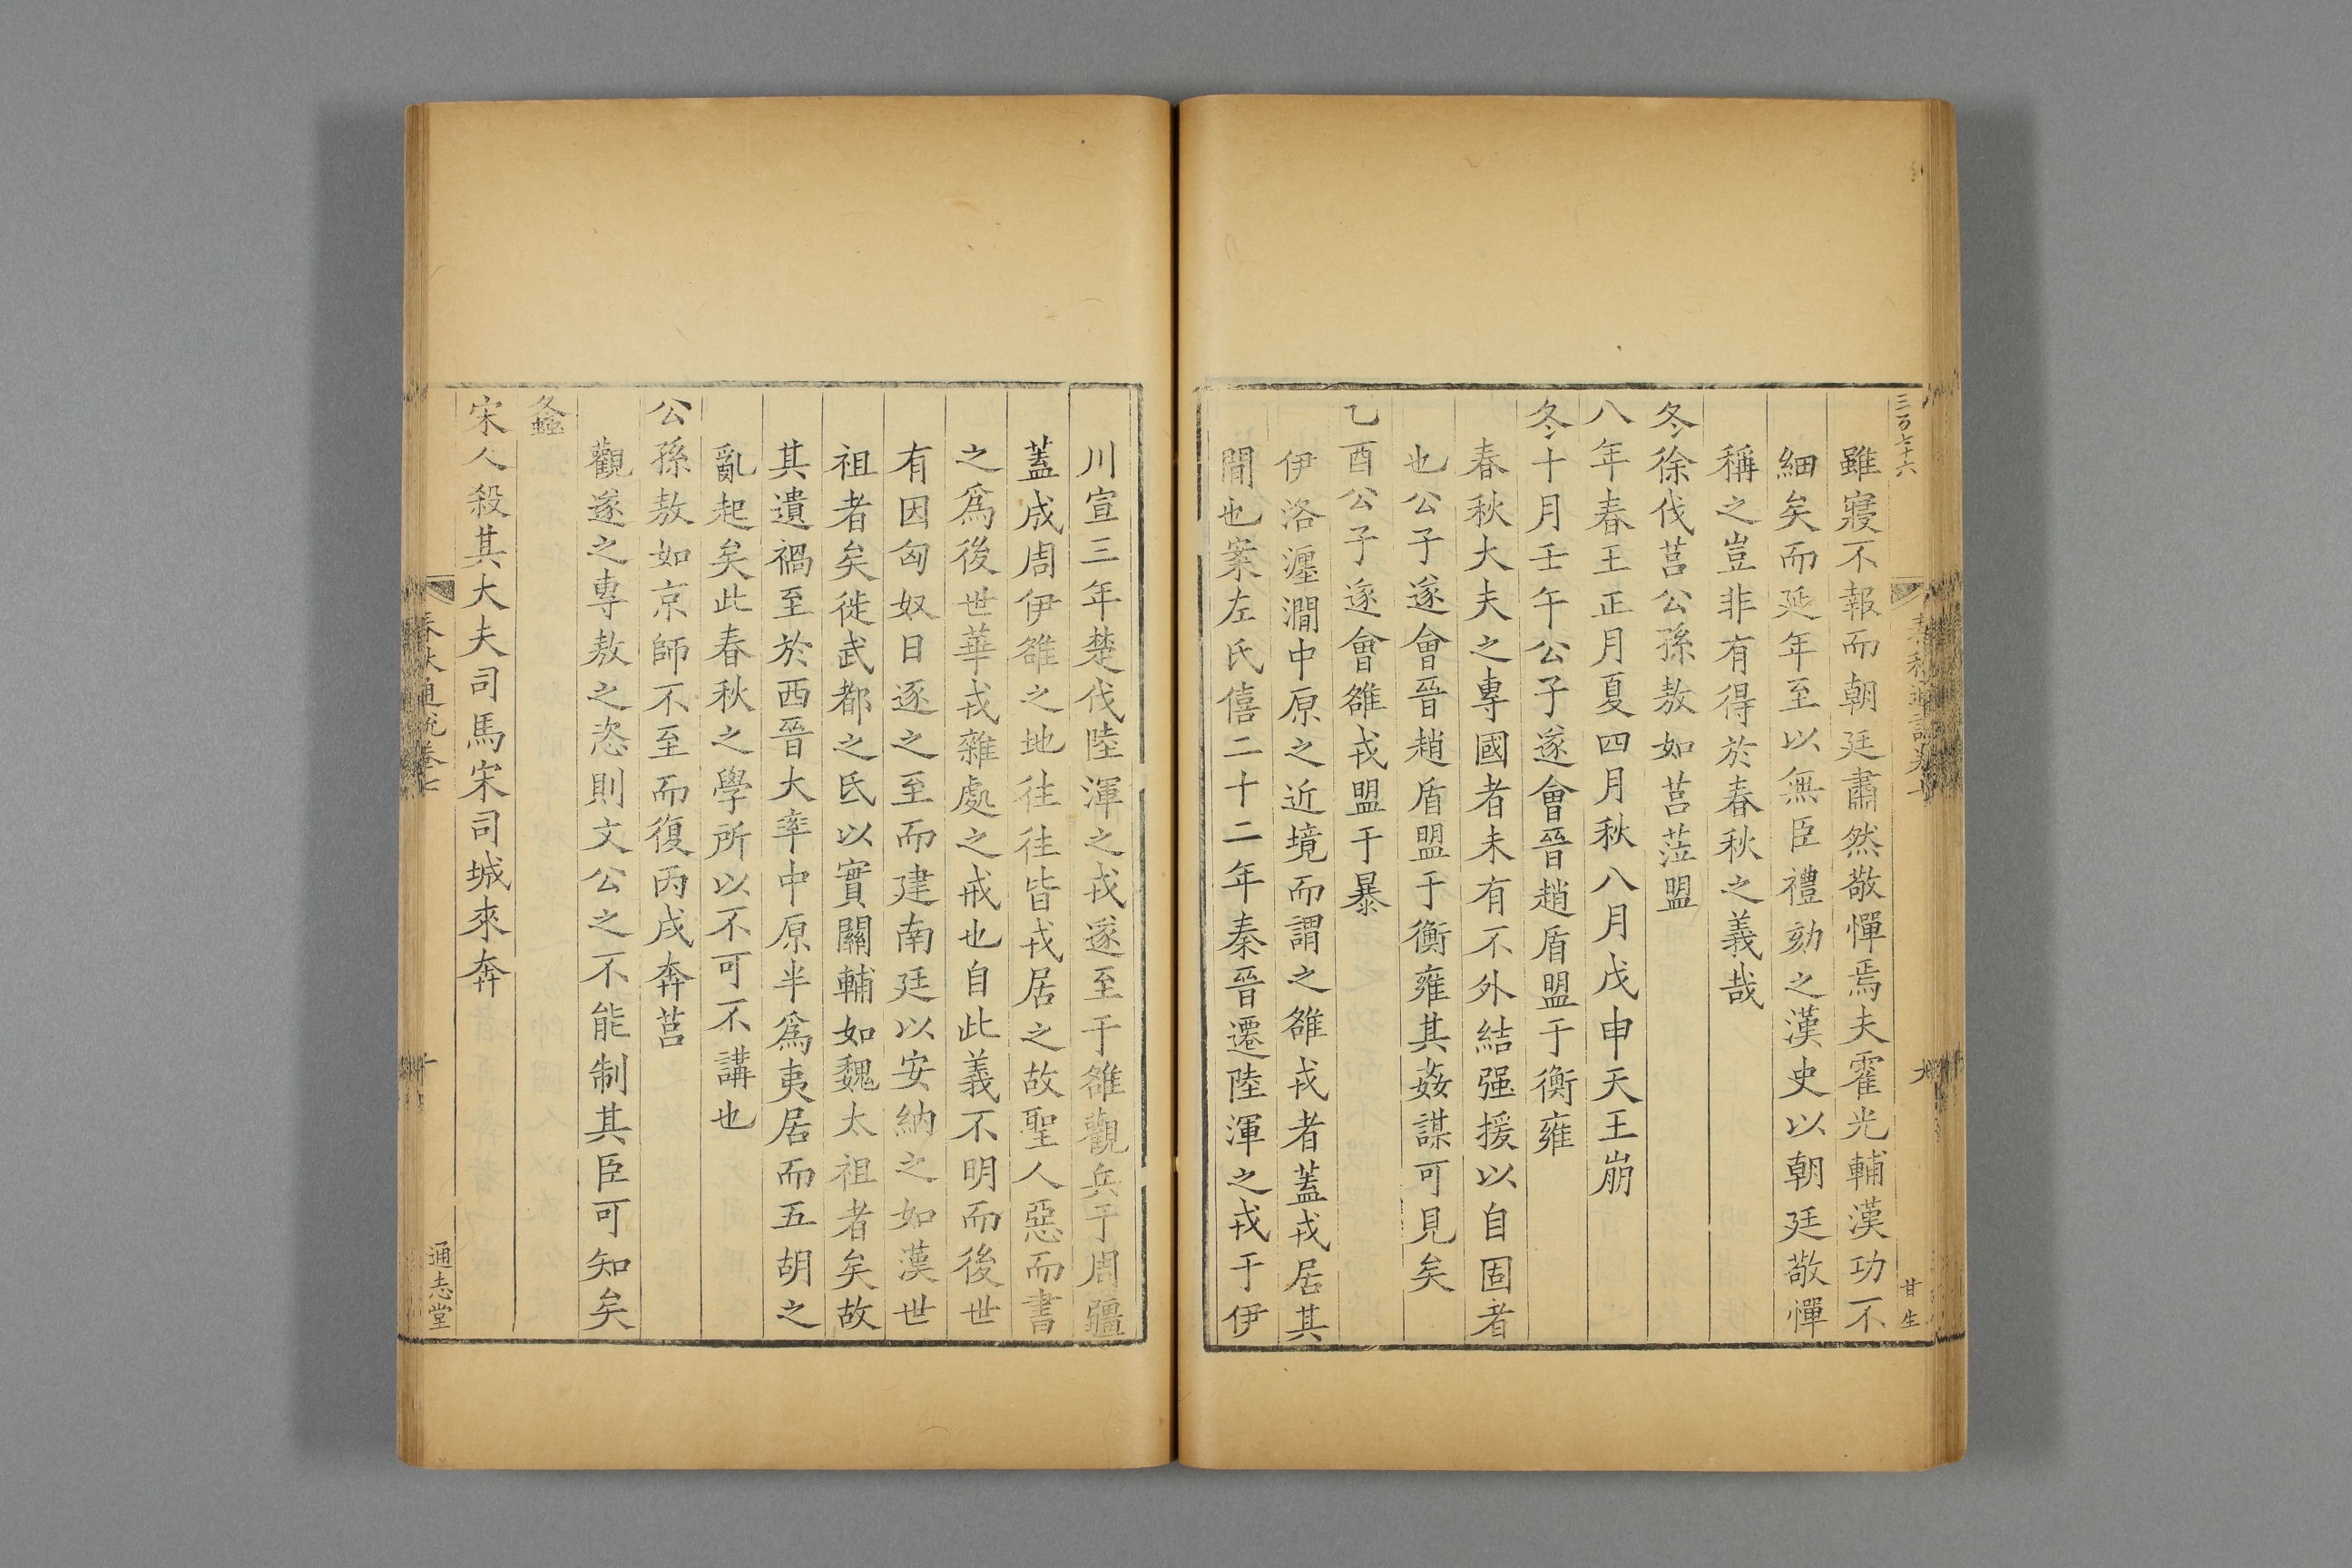 三百七十六
甘生
雖寢不報而朝廷肅然敬憚焉夫霍光輔漢功不
細矣而延年至以無臣禮劾之漢史以朝廷敬憚
稱之豈非有得於春秋之義哉
冬徐伐莒公孫敖如莒蒞盟
八年春王正月夏四月秋八月戊申天王崩
冬十月壬午公子遂會晉趙盾盟于衡雍
春秋大夫之專國者未有不外結强援以自固者
也公子遂會晉趙盾盟于衡雍其姦謀可見矣
乙酉公子遂會雒戎盟于暴
伊洛瀍澗中原之近境而謂之雒戎者蓋戎居其
間也案左氏僖二十二年秦晉遷陸渾之戎于伊
川宣三年楚伐陸渾之戎遂至于雒觀兵于周疆
蓋成周伊雒之地往往皆戎居之故聖人惡而書
之爲後世華戎雜處之戒也自此義不明而後世
有因匈奴日逐之至而建南廷以安納之如漢世
祖者矣徙武都之氐以實關輔如魏太祖者矣故
其遺禍至於西晉大率中原半爲夷居而五胡之
亂起矣此春秋之學所以不可不講也
公孫敖如京師不至而復丙戌奔莒
觀遂之專敖之恣則文公之不能制其臣可知矣
螽
宋人殺其大夫司馬宋司城來奔
春秋通說卷七
十
通志堂